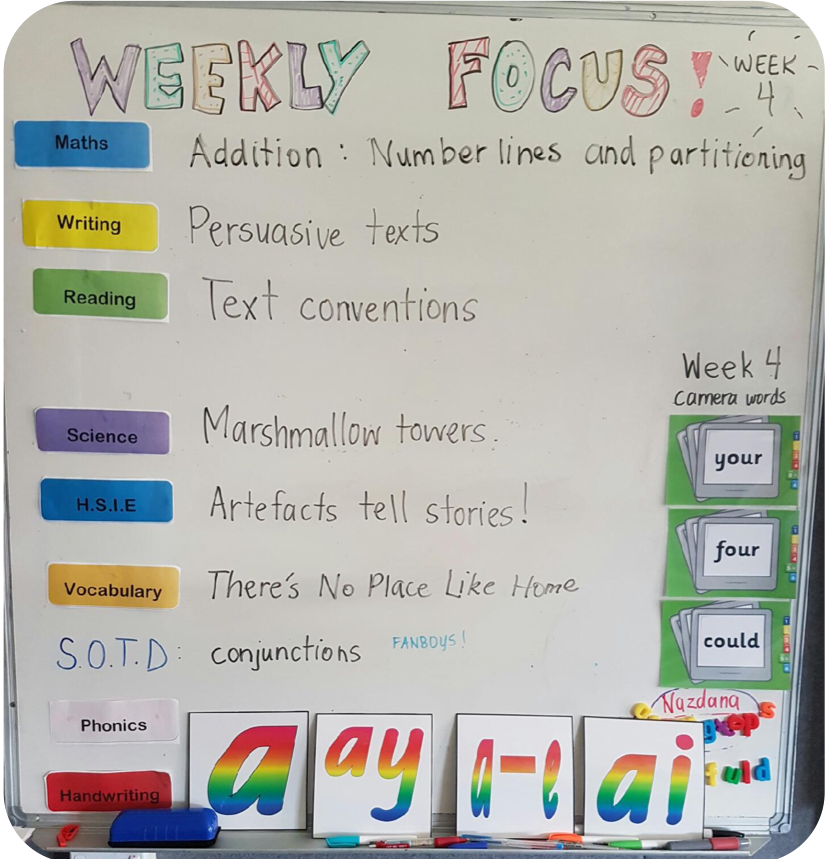 WEEKLY FOCUS!
WEEK
4
Maths
Addition: Number lines and partitioning
Writing
Persuasive texts
Reading
Text conventions
Week 4
camera words
your
four
could
Science
Marshmallow towers.
H.S.I.E
Artefacts tell stories!
Vocabulary
There's No Place Like Home
S.O.T.D:
conjunctions
FANBOYS!
Nazdana
Phonics
a
ay
a-e
ai
Handwriting